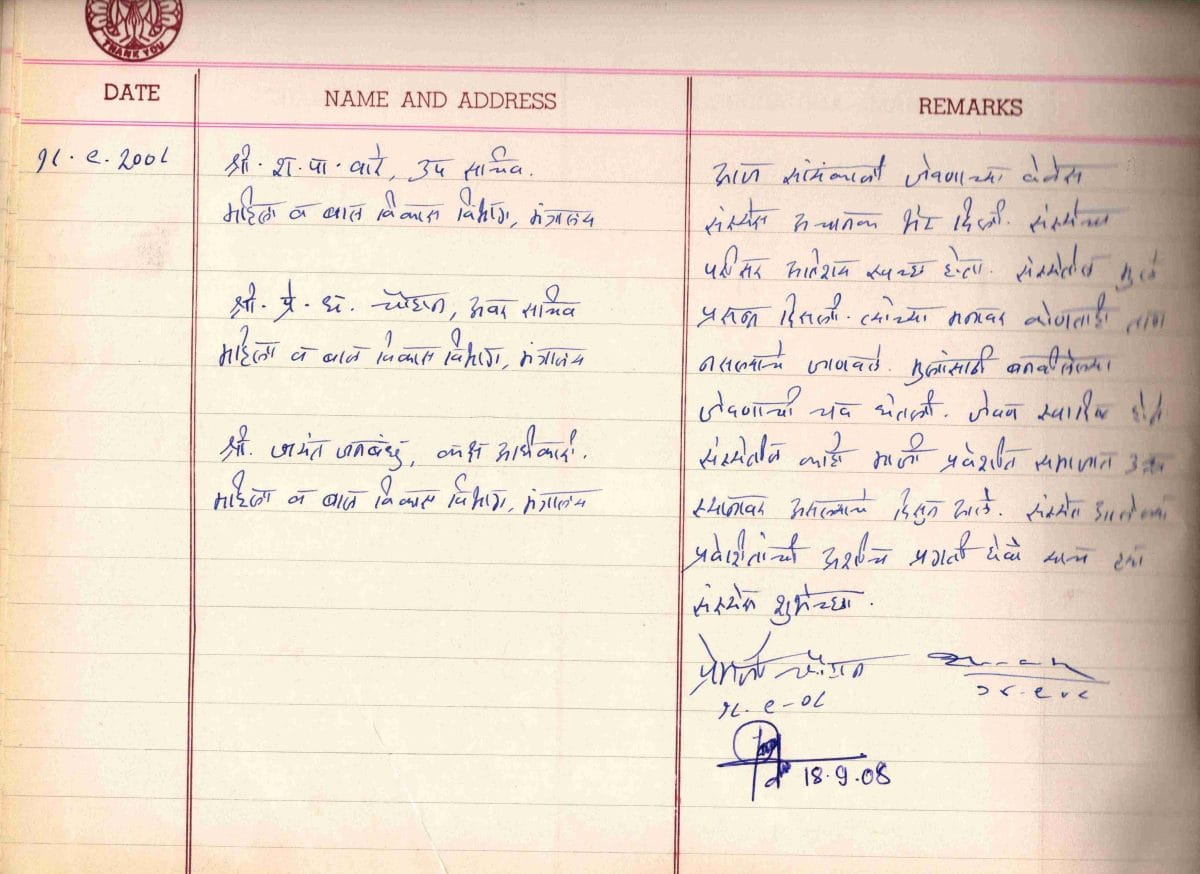 THANK YOU
DATE
NAME AND ADDRESS
REMARKS
१८.९.२००८
श्री. श. पा. वारे, उप सचिव.
महिला व बाल विकास विभाग, मंत्रालय
श्री. प्रे. घ. चौहान, अवर सचिव
महिला व बाल विकास विभाग, मंत्रालय
श्री. जयंत जनबंधु, कक्ष अधिकारी.
महिला व बाल विकास विभाग, मंत्रालय
आज जेवणाच्या वेळेस
संस्थेस अचानक भेट दिली. संस्थेचा
परिसर अतिशय स्वच्छ होता. संस्थेतील मुले
प्रसन्न दिसली. त्यांच्या मनावर कोणताही ताण
नसल्याचे जाणवले. मुलांसाठी बनविलेल्या
जेवणाची चव घेतली. जेवण होते.
संस्थेतील काही माजी प्रवेशीत समाजात उच्च
स्थानावर असल्याचे दिसून आले. संस्थेत
प्रवेशीतांची अशीच प्रगती होवो
संस्थेस शुभेच्छा.
१८.९-०८
१८.९.०८
18.9.08